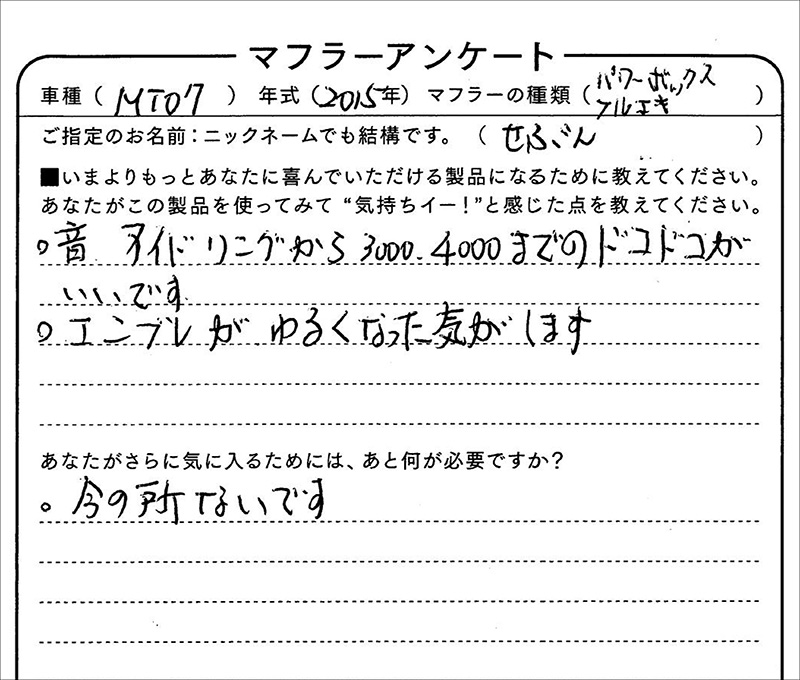 マフラーアンケート
車種（ MT07 ） 年式（2015年） マフラーの種類（ パワーボックス フルエキ ）
ご指定のお名前：ニックネームでも結構です。（ せふぶん ）
■いまよりもっとあなたに喜んでいただける製品になるために教えてください。
あなたがこの製品を使ってみて“気持ちイー！”と感じた点を教えてください。
○音 アイドリングから3000.4000までのドコドコが
いいです
○エンブレが ゆるくなった気がします
あなたがさらに気に入るためには、あと何が必要ですか？
○今の所ないです